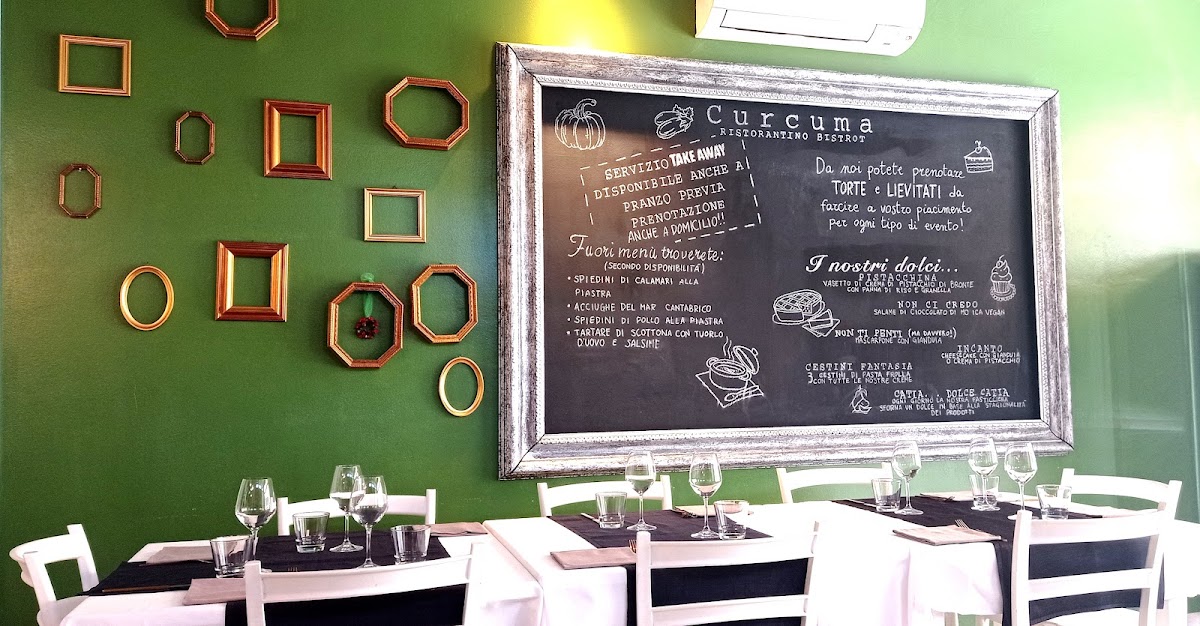 Curcuma
RISTORANTINO BISTROT
SERVIZIO TAKE AWAY
DISPONIBILE ANCHE A
PRANZO PREVIA
PRENOTAZIONE
ANCHE A DOMICILIO!!
Fuori menù troverete:
(SECONDO DISPONIBILITÀ)
• SPIEDINI DI CALAMARI ALLA
PIASTRA
• ACCIUGHE DEL MAR CANTABRICO
• SPIEDINI DI POLLO ALLA PIASTRA
• TARTARE DI SCOTTONA CON TUORLO
D'UOVO E SALSINE
Da noi potete prenotare
TORTE e LIEVITATI da
farcire a vostro piacimento
per ogni tipo di evento!
I nostri dolci...
PISTACCHINA
VASETTO DI CREMA DI PISTACCHIO DI BRONTE
CON PANNA DI RISO E GRANELLA
NON CI CREDO
SALAME DI CIOCCOLATO DI MODICA VEGAN
NON TI PENTI (MA DAVVERO!)
MASCARPONE CON GIANDUIA
INCANTO
CHEESECAKE CON GIANDUIA
O CREMA DI PISTACCHIO
CESTINI FANTASIA
3 CESTINI DI PASTA FROLLA
CON TUTTE LE NOSTRE CREME
CATIA... DOLCE CATIA
OGNI GIORNO LA NOSTRA PASTICCIERA
SFORNA UN DOLCE IN BASE ALLA STAGIONALITÀ
DEI PRODOTTI